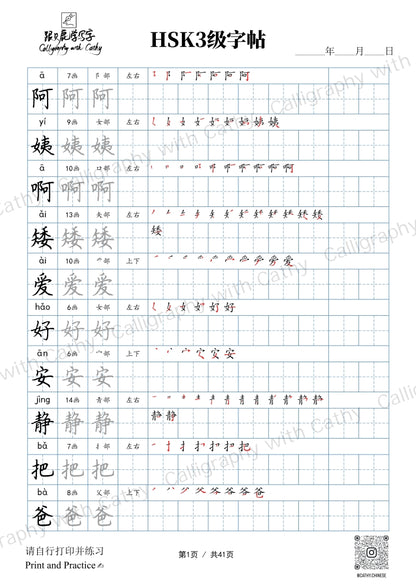 跟只鹿学写字
Calligraphy with Cathy
HSK3级字帖
年 月 日
ā 7画 阝部 左右
阿 阿 阿
yí 9画 女部 左右
姨 姨 姨
ā 10画 口部 左右
啊 啊 啊
ǎi 13画 矢部 左右
矮 矮 矮
ài 10画 爫部 上下
爱 爱 爱
hǎo 6画 女部 左右
好 好 好
ān 6画 宀部 上下
安 安 安
jìng 14画 青部 左右
静 静 静
bǎ 7画 扌部 左右
把 把 把
bà 8画 父部 上下
爸 爸 爸
请自行打印并练习
Print and Practice
第1页 / 共41页
@CATHY.CHINESE